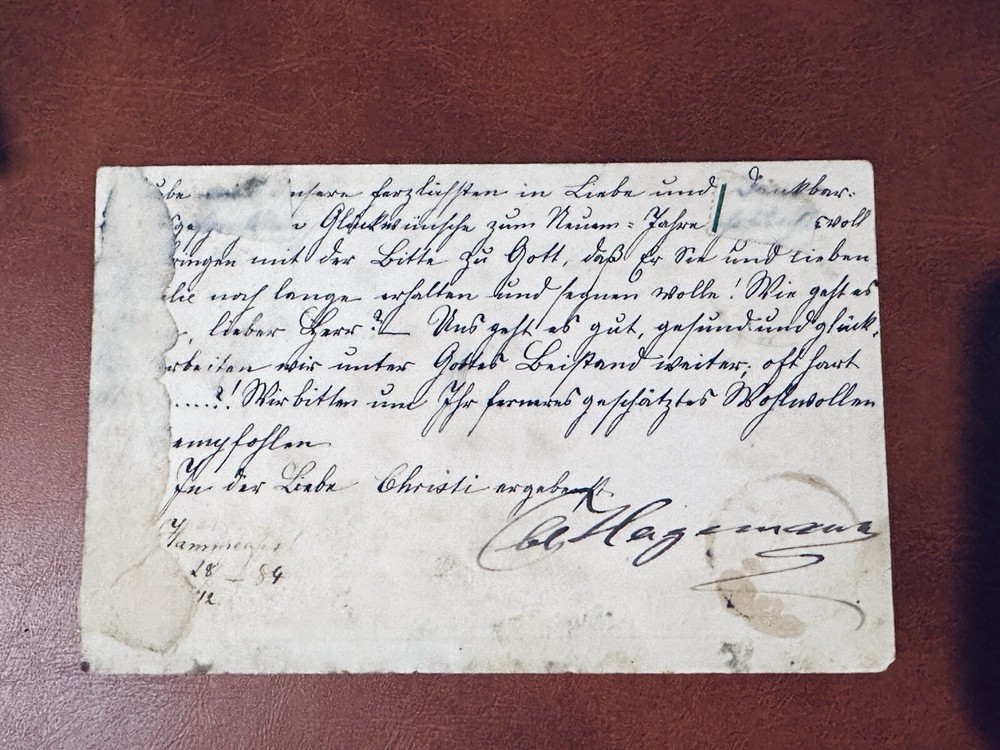 unsere herzlichsten in Liebe und Dankbar-
Glückwünsche zum Neuen-Jahre voll
ringen mit der Bitte zu Gott, daß Er Sie und lieben
lie noch lange erhalten und segnen wolle! Wie geht es
, lieber Herr? — Uns geht es gut, gesund und glück-
rbeiten wir unter Gottes Beistand weiter, oft hart
....?! Wir bitten um Ihr ferneres geschätztes Wohlwollen
empfohlen
In der Liebe Christi ergebenst
Hagemann
28 — 84
12